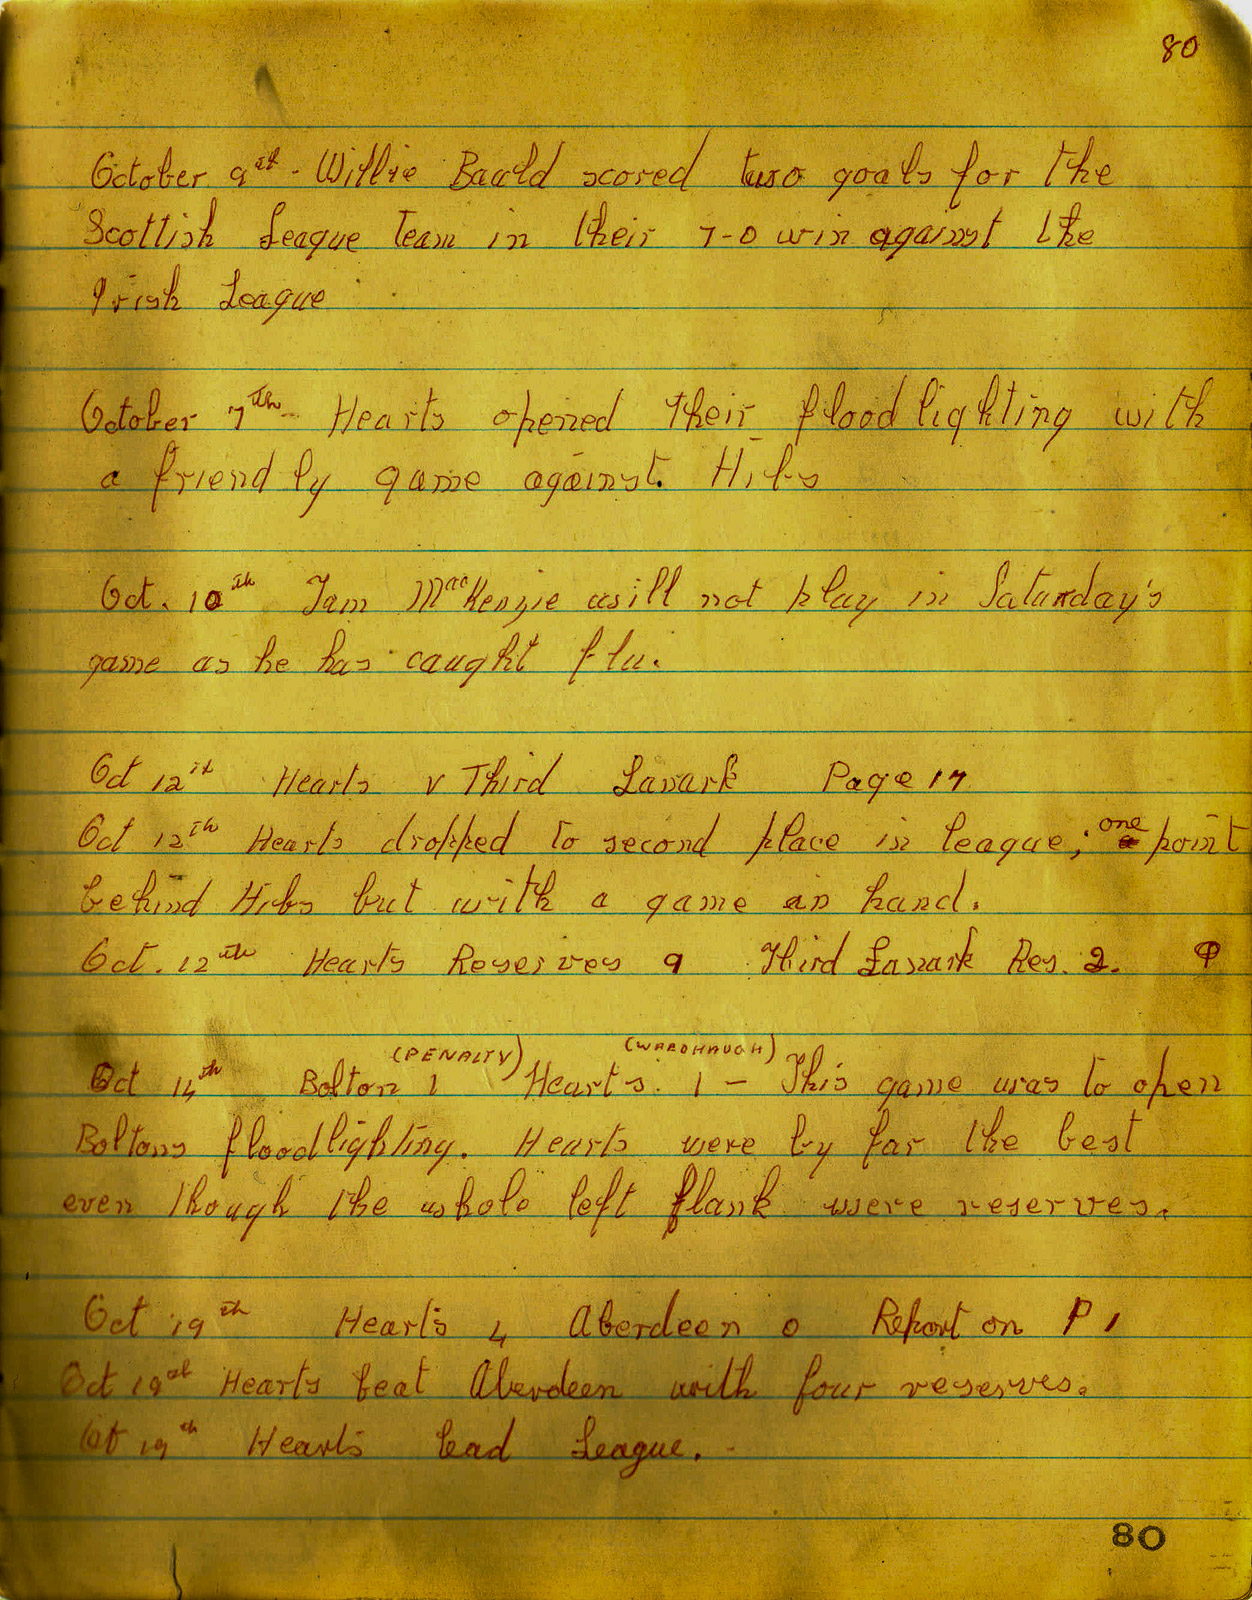 80
October 9th - Willie Bauld scored two goals for the
Scottish League Team in their 7-0 win against the
Irish League
October 7th Hearts opened their floodlighting with
a friendly game against. Hibs
Oct. 10th Tam MacKenzie will not play in Saturday's
game as he has caught flu.
Oct 12th Hearts v Third Lanark Page 17
Oct 12th Hearts dropped to second place in league; one point
behind Hibs but with a game in hand.
Oct. 12th Hearts Reserves 9 Third Lanark Res. 2.
(PENALTY) (WARDHAUGH)
Oct 14th Bolton 1 Hearts. 1 - This game was to open
Boltons floodlighting. Hearts were by far the best
even though the whole left flank were reserves.
Oct 19th Hearts 4 Aberdeen 0 Report on P 1
Oct 19th Hearts beat Aberdeen with four reserves.
Oct 19th Hearts lead League. -
80